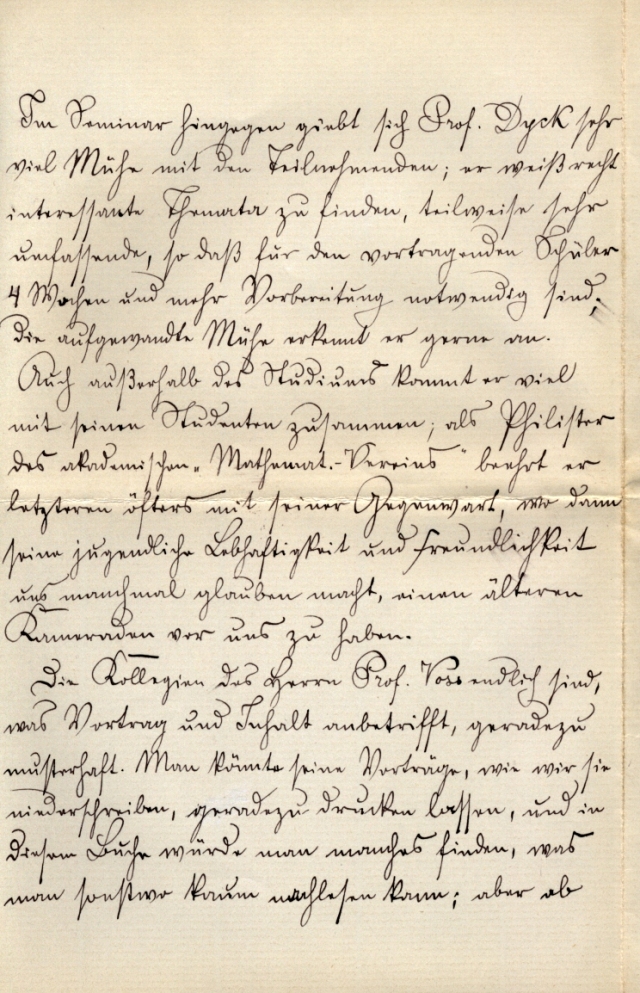 Im Seminar hingegen giebt sich Prof. Dyck sehr
viel Mühe mit den Teilnehmenden; er weiß recht
interessante Themata zu finden, teilweise sehr
umfassende, so daß für den vortragenden Schüler
4 Wochen und mehr Vorbereitung notwendig sind;
die aufgewandte Mühe erkennt er gerne an.
Auch außerhalb des Studiums kommt er viel
mit seinen Studenten zusammen; als Philister
des akademischen „Mathemat.-Vereins" beehrt er
letzteren öfters mit seiner Gegenwart, wo dann
seine jugendliche Lebhaftigkeit und Freundlichkeit
uns manchmal glauben macht, einen älteren
Kameraden vor uns zu haben.
Die Kollegien des Herrn Prof. Voss endlich sind,
was Vortrag und Inhalt anbetrifft, geradezu
musterhaft. Man könnte seine Vorträge, wie wir sie
niederschreiben, geradezu drucken lassen, und in
diesem Buche würde man manches finden, was
man sonstwo kaum nachlesen kann; aber ob